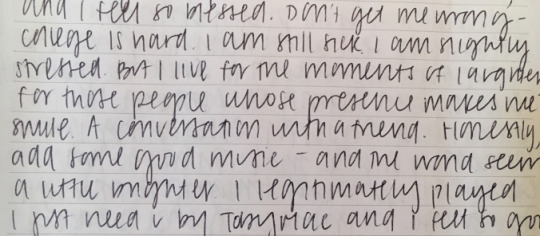 and I feel so blessed. Don't get me wrong -
college is hard. I am still sick. I am slightly
stressed. But I live for the moments of laughter
for those people whose presence makes me
smile. A conversation with a friend. Honestly,
add some good music - and the world seem
a little brighter. I legitimately played
I just need U by TobyMac and I feel so goo